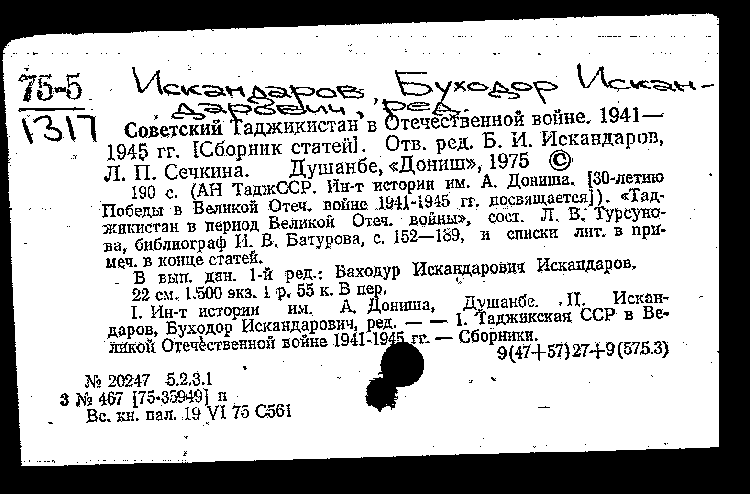 75-5
1317
Искандаров, Буходор Искан-
дарович, ред.
Советский Таджикистан в Отечественной войне. 1941—
1945 гг. [Сборник статей]. Отв. ред. Б. И. Искандаров,
Л. П. Сечкина. Душанбе, «Дониш», 1975 ©
190 с. (АН ТаджССР. Ин-т истории им. А. Дониша. [30-летию
Победы в Великой Отеч. войне 1941-1945 гг. посвящается]). «Тад-
жикистан в период Великой Отеч. войны», сост. Л. В. Турсуно-
ва, библиограф И. В. Батурова, с. 152—189, и списки лит. в при-
меч. в конце статей.
В вып. дан. 1-й ред.: Баходур Искандарович Искандаров.
22 см. 1.500 экз. 1 р. 55 к. В пер.
I. Ин-т истории им. А. Дониша, Душанбе. II. Искан-
даров, Буходор Искандарович, ред. — — 1. Таджикская ССР в Ве-
ликой Отечественной войне 1941-1945 гг. — Сборники.
9(47+57)27+9(575.3)
№ 20247 5.2.3.1
3 № 467 [75-35949] п
Вс. кн. пал. 19 VI 75 С561